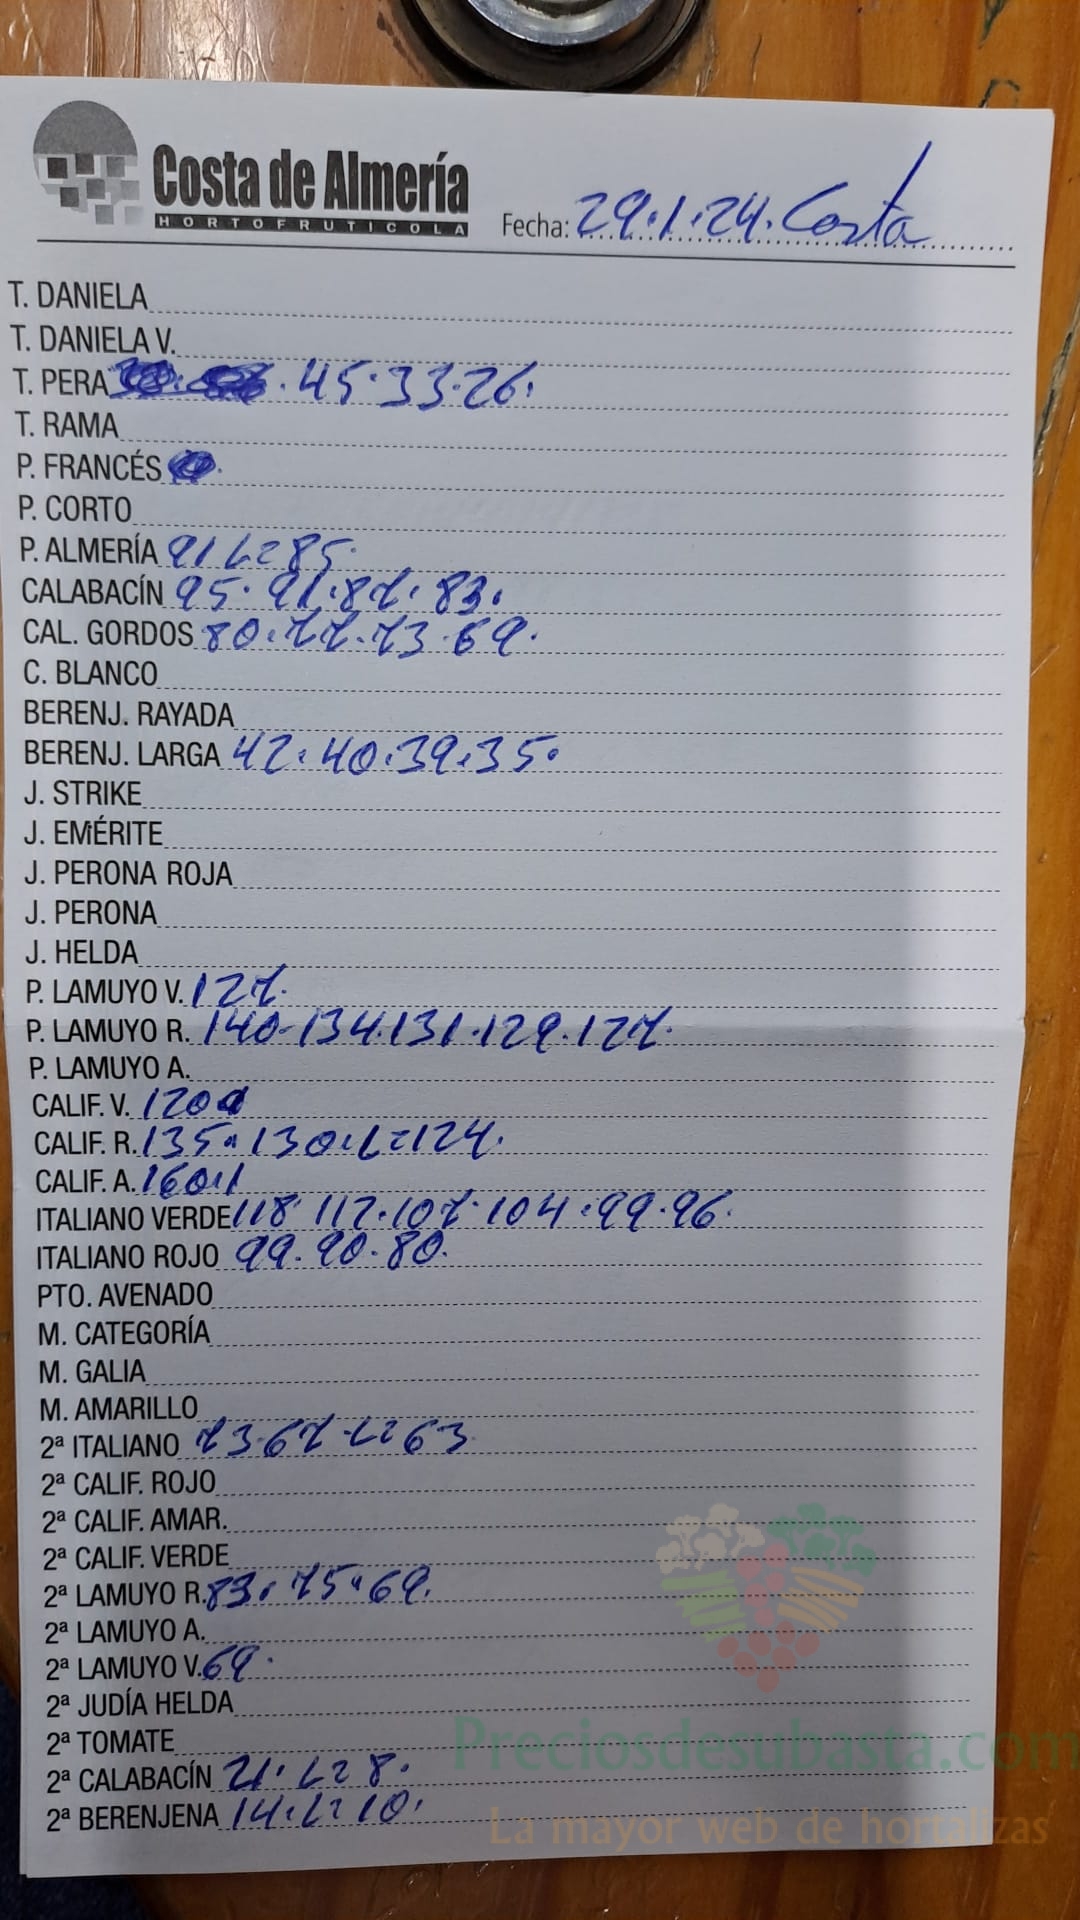 Costa de Almería
HORTOFRUTICOLA
Fecha: 29.1.24. Costa
T. DANIELA
T. DANIELA V.
T. PERA . 45.33.26.
T. RAMA
P. FRANCÉS
P. CORTO
P. ALMERÍA 91 L= 85.
CALABACÍN 95. 91.87. 83.
CAL. GORDOS 80.77.73.69.
C. BLANCO
BERENJ. RAYADA
BERENJ. LARGA 42.40.39.35.
J. STRIKE
J. EMÉRITE
J. PERONA ROJA
J. PERONA
J. HELDA
P. LAMUYO V. 127.
P. LAMUYO R. 140-134.131.129.127.
P. LAMUYO A.
CALIF. V. 120
CALIF. R. 135. 130.L=124.
CALIF. A. 160.1
ITALIANO VERDE 118 112.107.104.99.96.
ITALIANO ROJO 99.90.80.
PTO. AVENADO
M. CATEGORÍA
M. GALIA
M. AMARILLO
2ª ITALIANO 73.67 L= 63
2ª CALIF. ROJO
2ª CALIF. AMAR.
2ª CALIF. VERDE
2ª LAMUYO R. 83. 75.69.
2ª LAMUYO A.
2ª LAMUYO V. 69.
2ª JUDÍA HELDA
2ª TOMATE
2ª CALABACÍN 21. L= 8.
2ª BERENJENA 14.L= 10.
Preciosdesubasta.com
La mayor web de hortalizas